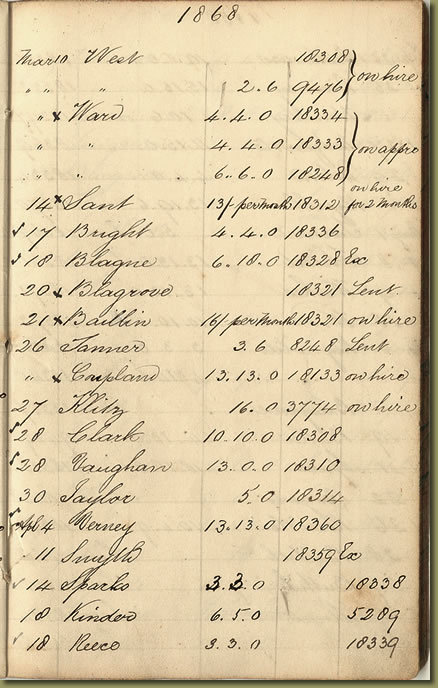 1868
Mar 10 West 18308 } on hire
" " " 1 2.6 9476
" x Ward 4.4.0 18334 } on appro
" " 4.4.0 18333
" " 6.6.0 18248
14 x Sant 13/- per month 18312 on hire for 2 months
17 Bright 4.4.0 18336
18 Blagne 6.10.0 18328 Ex
20 x Blagrove 18321 Lent.
21 x Baillin 16/- per month 18321 on hire
26 Tanner 3.6 8248 Lent
" x Coupland 13.13.0 18133 on hire
27 Klitz 16.0 3774 on hire
28 Clark 10.10.0 18308
28 Vaughan 13.0.0 18310
30 Taylor 5.0 18314
Apl 4 Berney 13.13.0 18360
11 Smyth 18359 Ex
14 Sparks 3.3.0 18338
18 Kinder 6.5.0 5289
18 Reece 3.3.0 18339